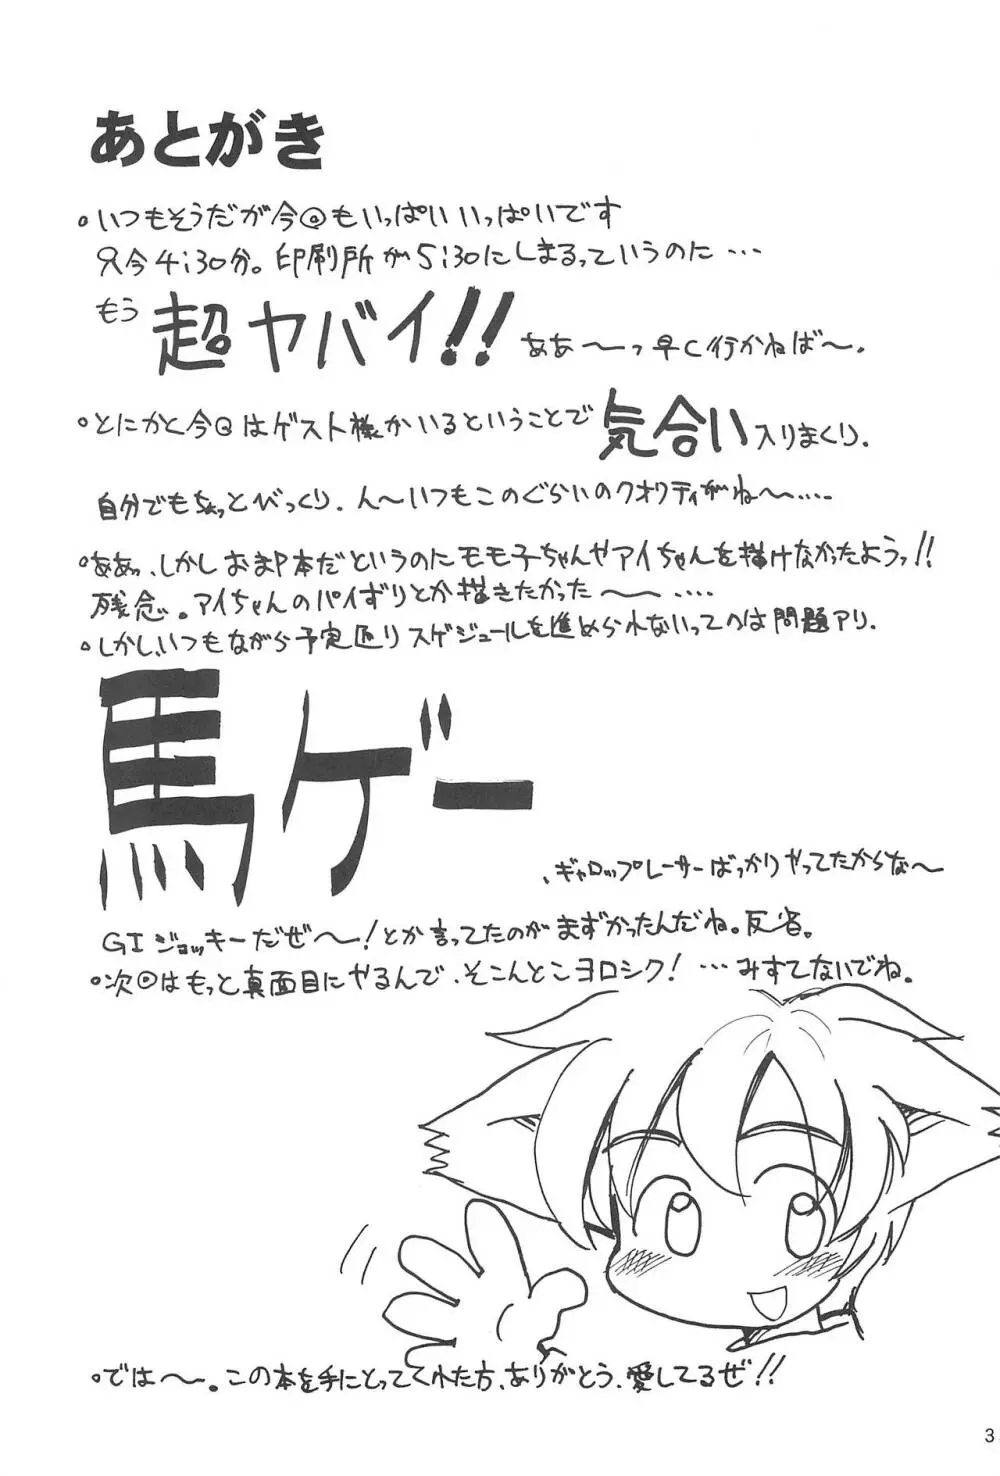 あとがき
。いつもそうだが今回もいっぱいいっぱいです
只今4:30分。印刷所が5:30にしまるっていうのに…
もう 超ヤバイ!! ああ〜っ早く行かねば〜.
。とにかく今回はゲスト様がいるということで 気合い 入りまくり.
自分でもちょっとびっくり. ん〜いつもこのぐらいのクオリティがね〜……
。ああっ、しかしおま 本だというのにモモ子ちゃんやアイちゃんを描けなかったようっ!!
残念。アイちゃんのパイずりとか描きたかった〜……
。しかし、いつもながら予定通りスケジュールを進められないってのは問題アリ.
馬ゲー
、ギャロップレーサーばっかりやってたからな〜
GIジョッキーだぜ〜!とか言ってたのがまずかったんだね。反省。
。次回はもっと真面目にやるんで、そこんとこヨロシク! …みすてないでね。
。では〜。この本を手にとってくれた方、ありがとう、愛してるぜ!!
3